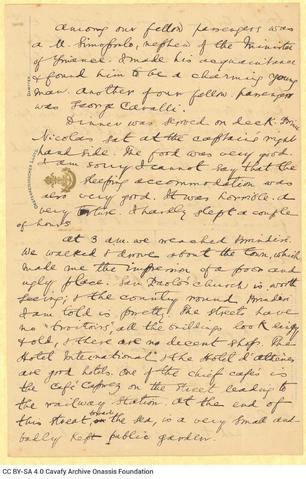 Among our fellow passengers was
a M. Simopoulo, nephew of the Minister
of Finance. I made his acquaintance
& found him to be a charming young
man. Another of our fellow passengers
was George Cavalli.
Dinner was served on deck.
Nicolas sat at the captain's right
hand side. The food was very good.
I am sorry I cannot say that the
sleeping accommodation was
also very good. It was horrible. a
very. I hardly slept a couple
of hours
At 3 a.m. we reached Brindisi.
We walked & drove about the town, which
made me the impression of a poor and
ugly place. San Paolo's church is worth
seeing; & the country round Brindisi
I am told is pretty. The streets have
no "trottoirs", all the buildings look
& old, & there are no decent shops. The
Hotel International & the Hotel d'
are good hotels. One of the chief cafés is
the Café on the street leading to
the railway station. At the end of
this street, the sea, is a very small and
badly kept public garden.
CC BY-SA 4.0 Cavafy Archive Onassis Foundation